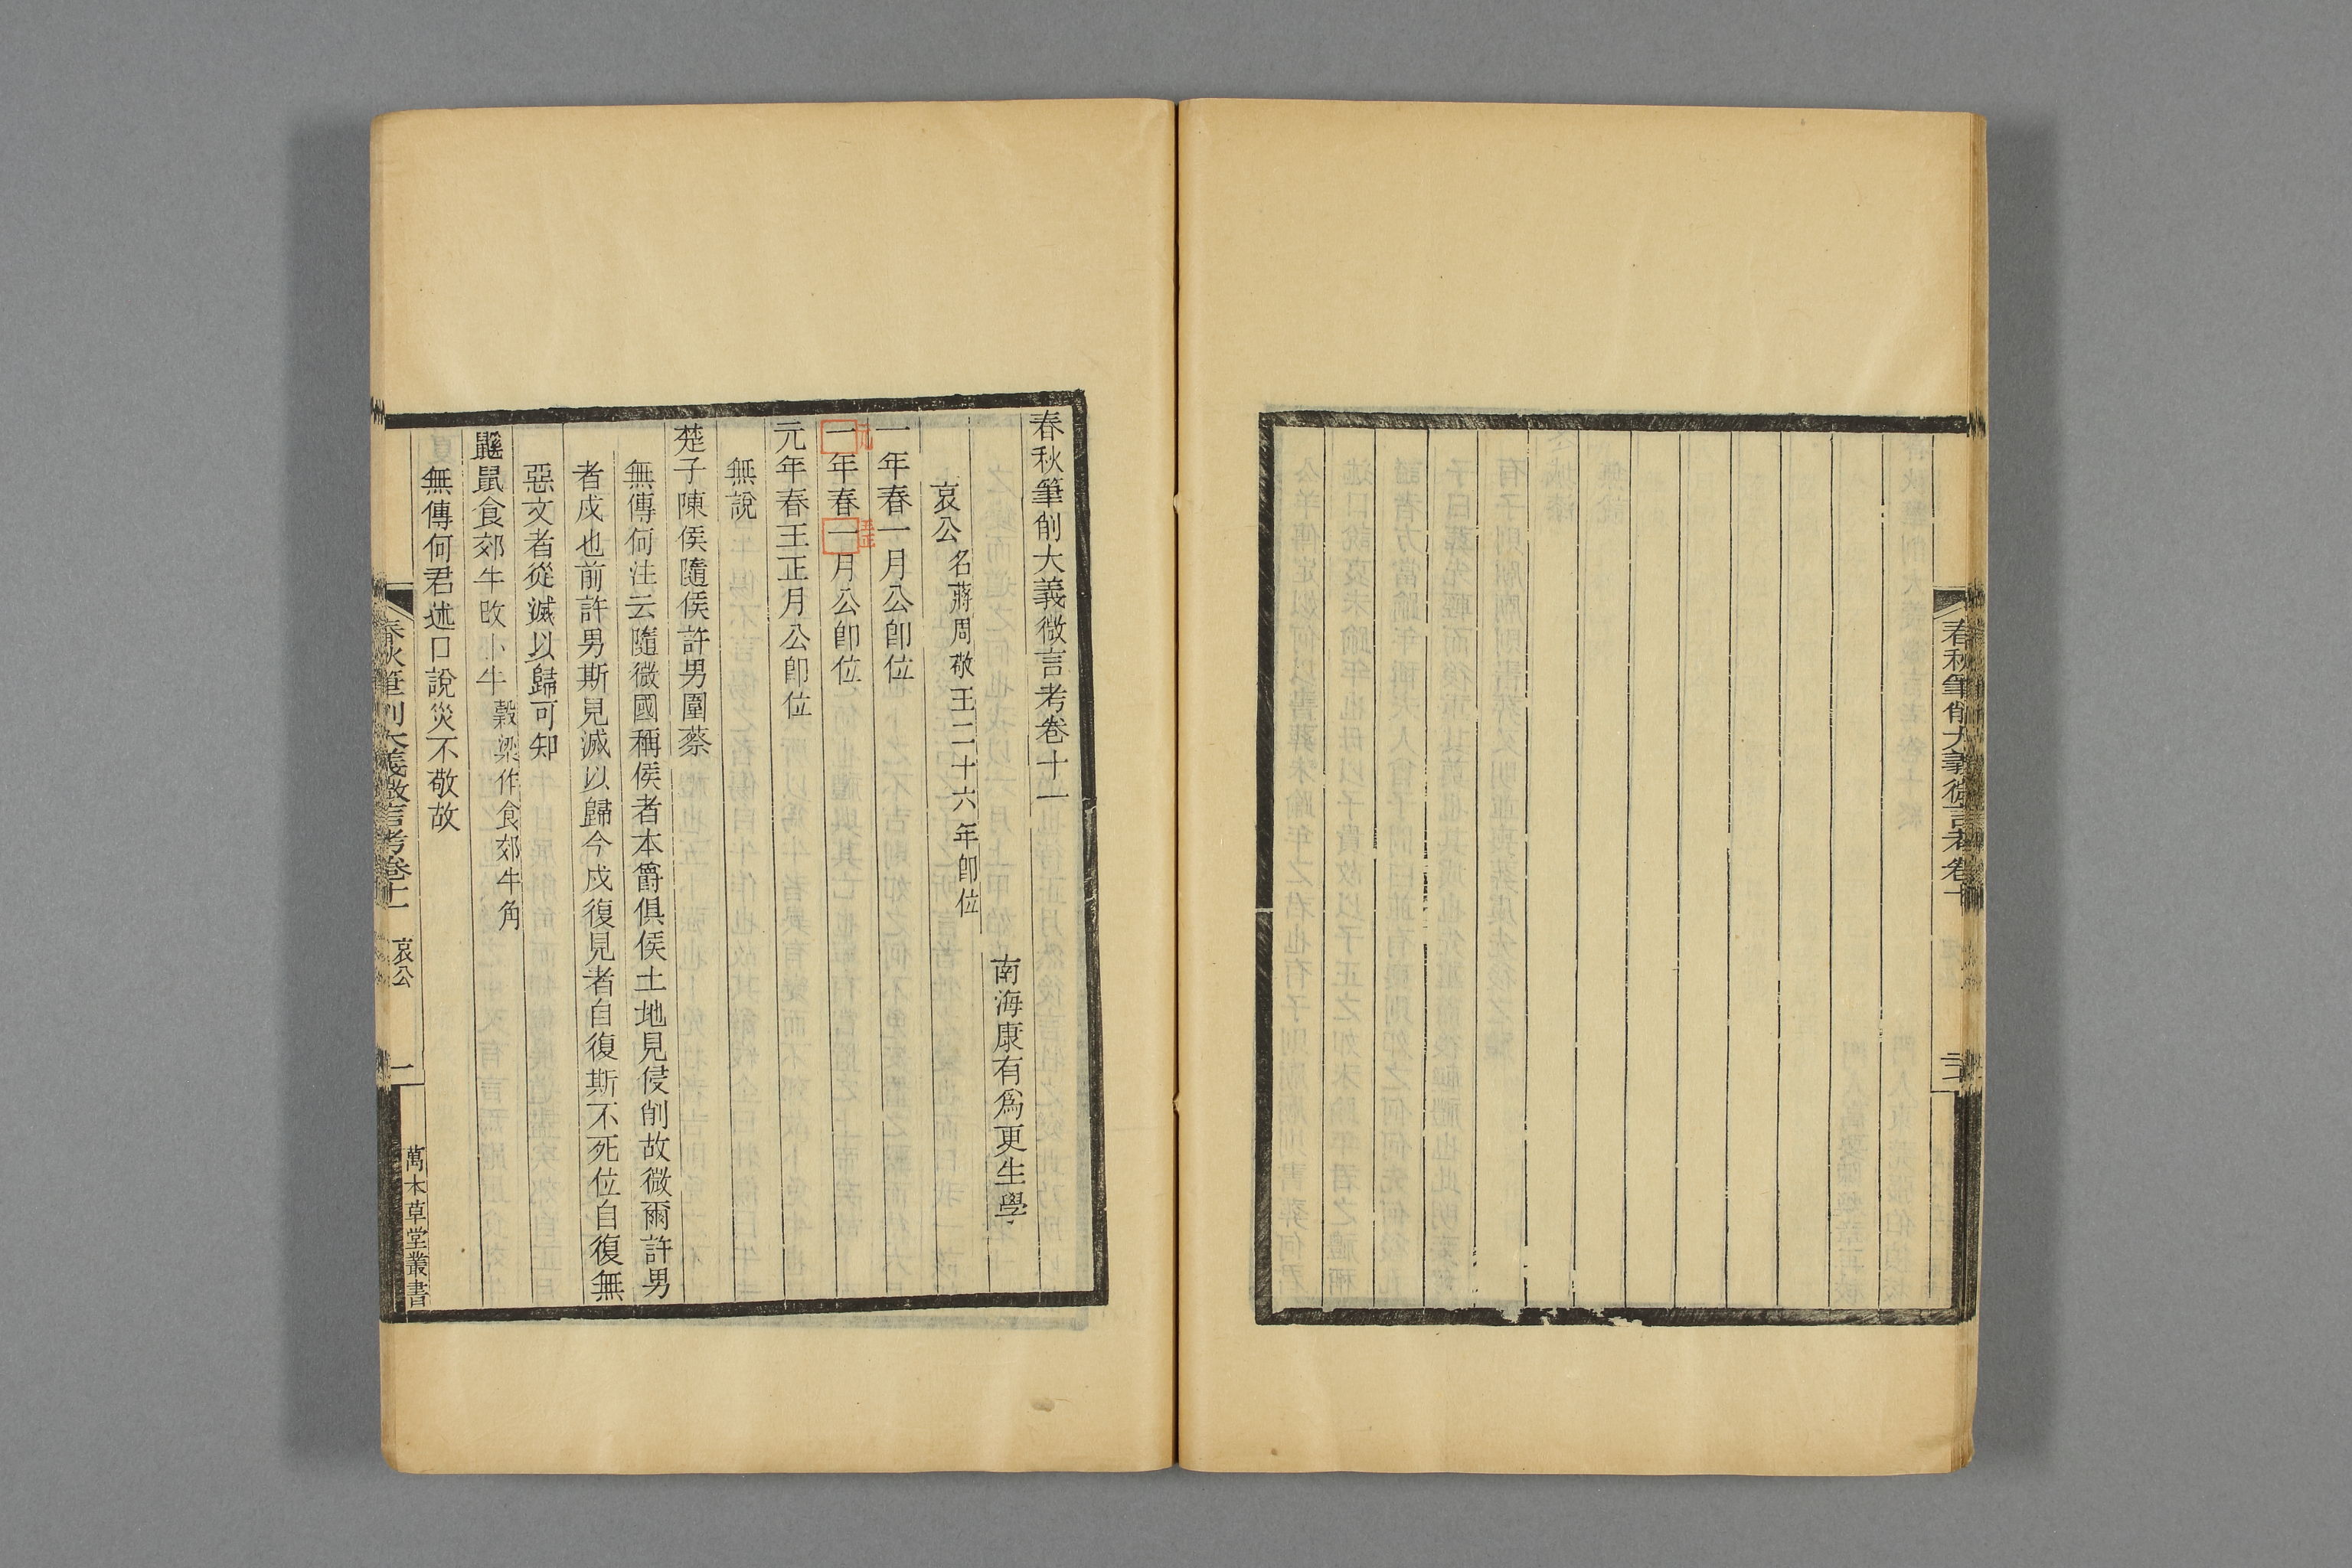 春秋筆削大義微言考卷十
春秋筆削大義微言考卷十一
南海康有爲更生學
哀公 名蔣周敬王二十六年卽位
一年春一月公卽位
一年春一月公卽位
元
王正
元年春王正月公卽位
無說
楚子陳侯隨侯許男圍蔡
無傳何注云隨微國稱侯者本爵俱侯土地見侵削故微爾許男
者戍也前許男斯見滅以歸今戍復見者自復斯不死位自復無
惡文者從滅以歸可知
鼷鼠食郊牛改卜牛 穀梁作食郊牛角
無傳何君述口說災不敬故
春秋筆削大義微言考卷十一 哀公 一 萬木草堂叢書